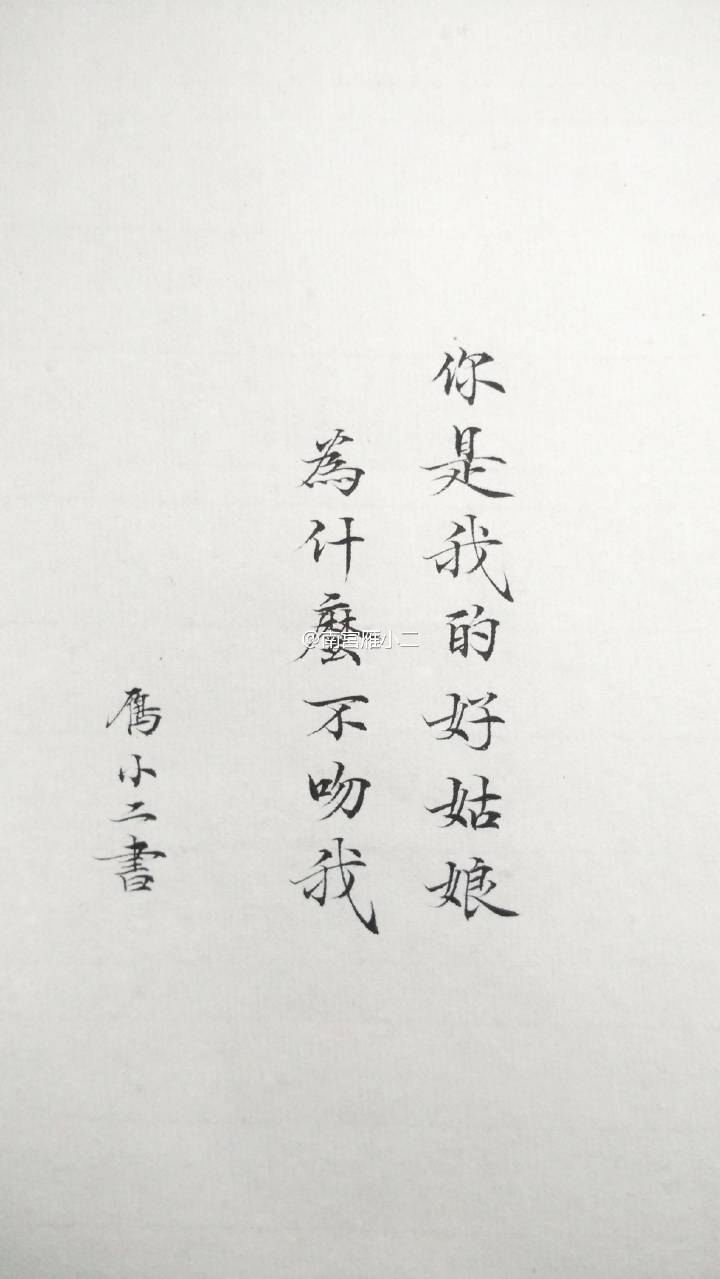 你是我的好姑娘
為什麼不吻我
雁小二書
@南宫雁小二